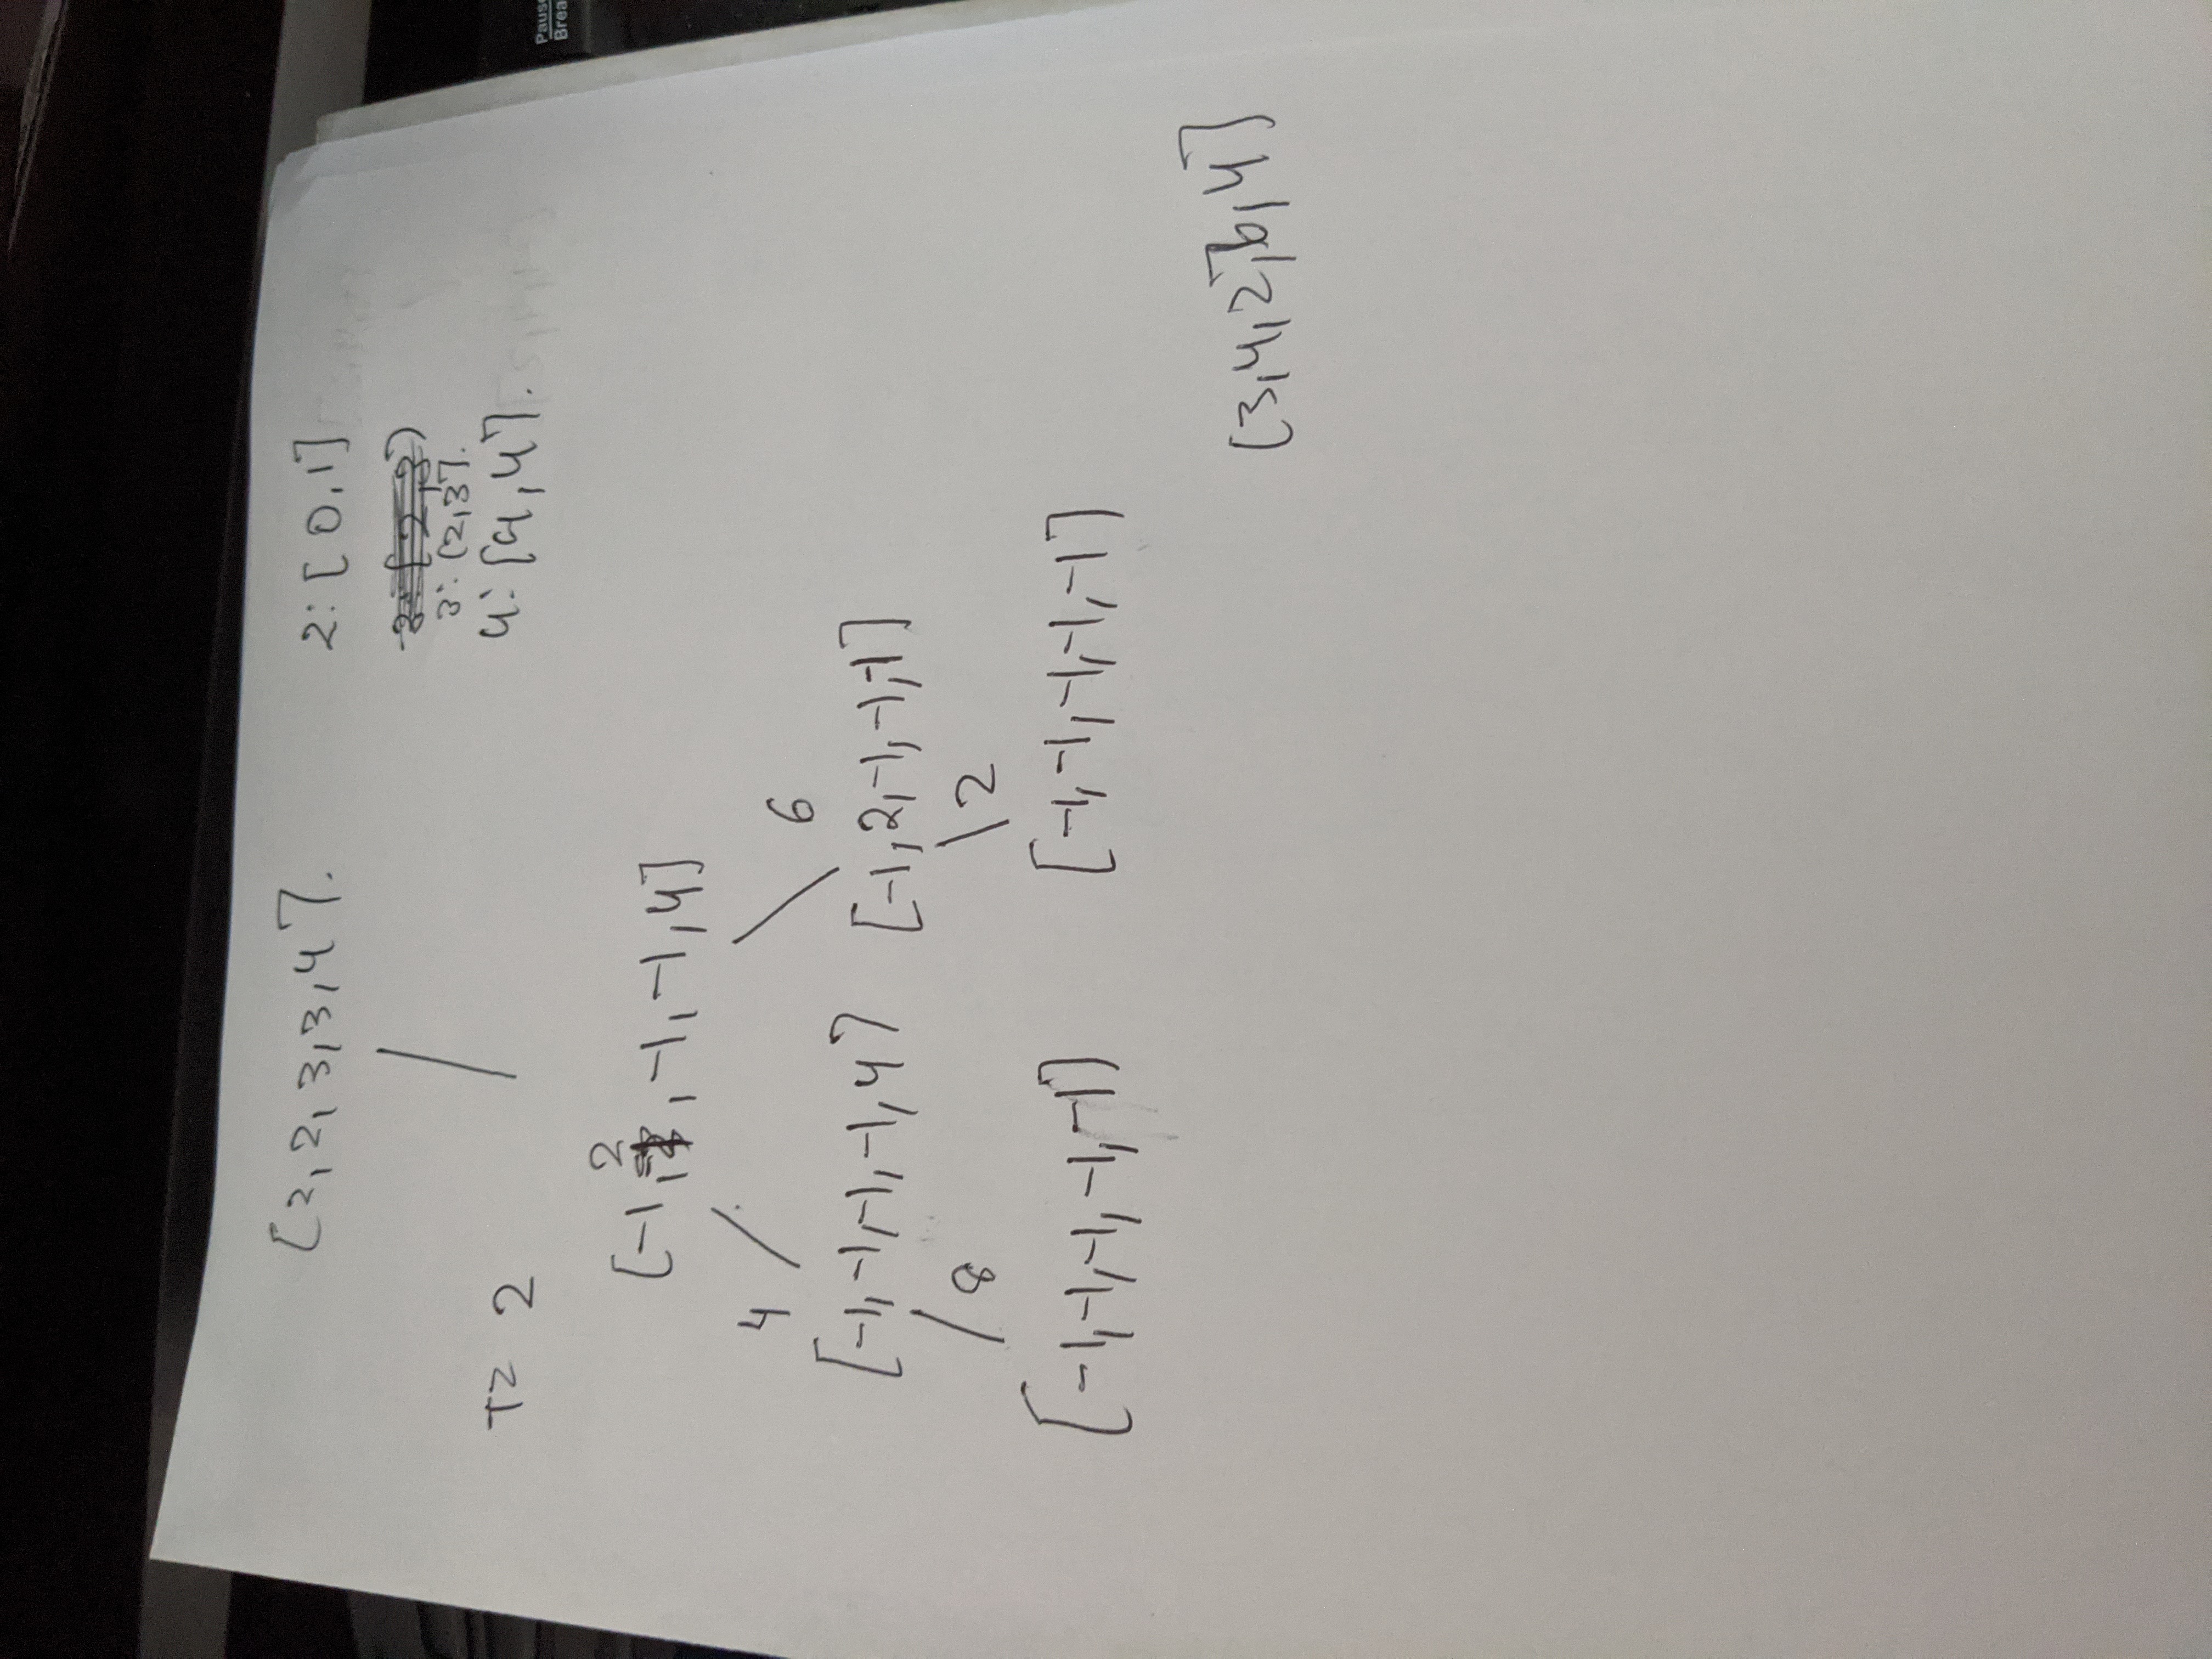 [2,2,3,3,4].
2: [0,1]
3: [2,3].
T= 2
4: [4,4].
2
[-1, , -1, -1, 4]
4
6
[-1,-1,-1,-1,4]
[-1,2,-1,-1,-1]
8
2
[-1,-1,-1,-1,-1]
[-1,-1,-1,-1,-1]
[3,4,2,6,4]
Pause
Brea